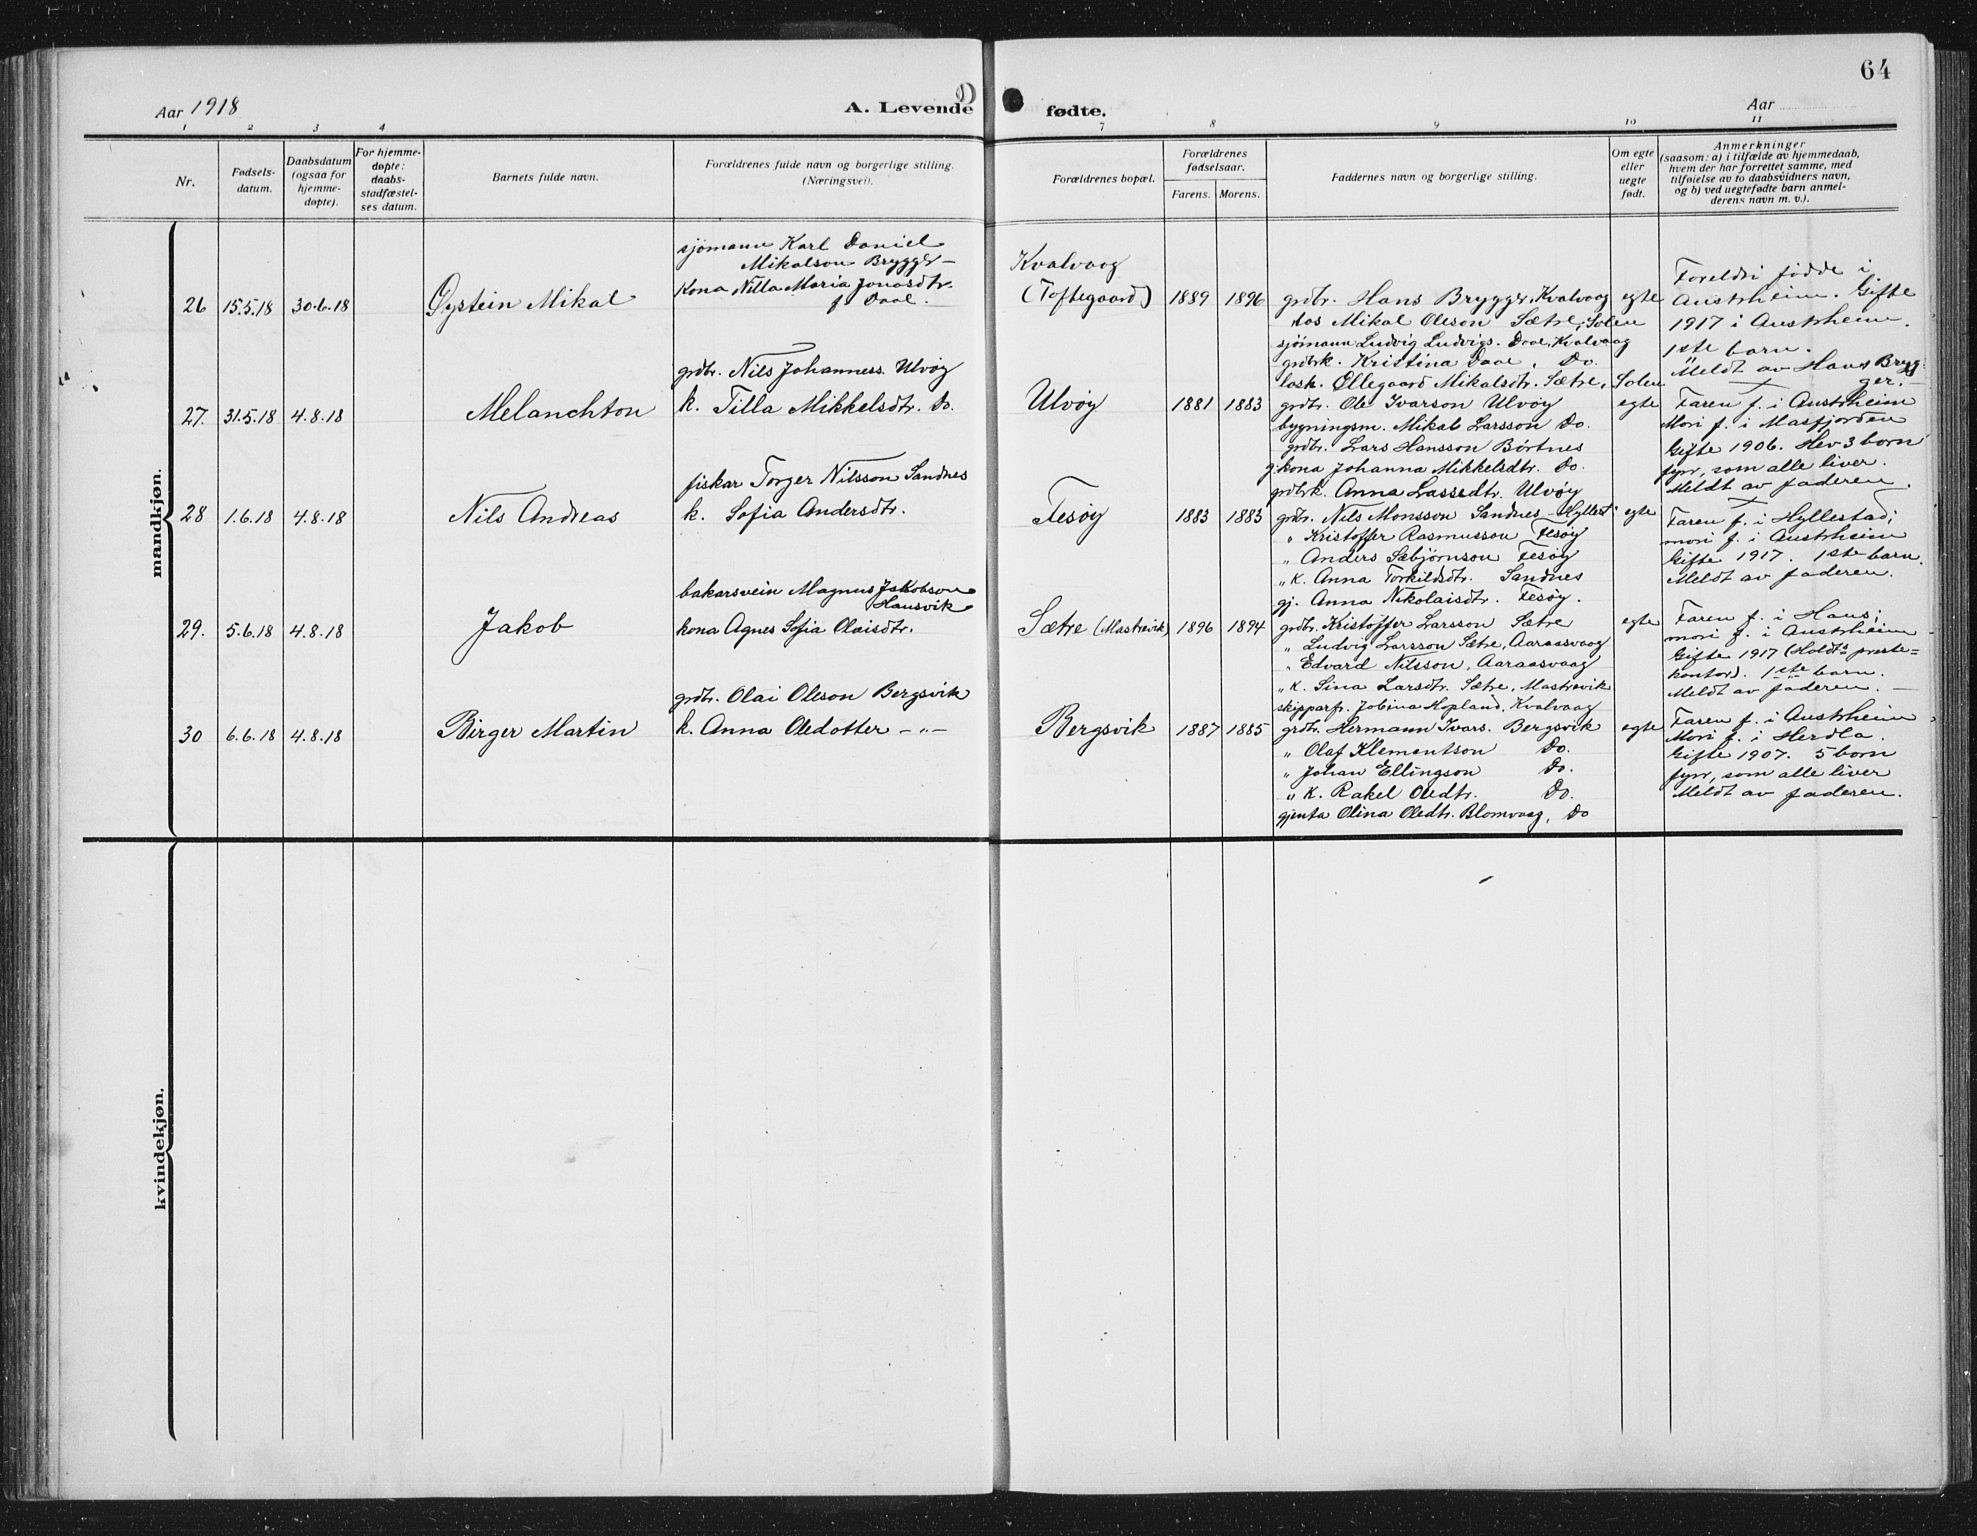 64
Aar 1918
A. Levende
fødte.
Aar
1 2 3 4
7 8 9 10 11
Nr.
Fødsels-
datum.
Daabsdatum
(ogsaa for
hjemme-
døpte).
For hjemme-
døpte:
daabs-
stadfæstel-
ses datum.
Barnets fulde navn.
Forældrenes fulde navn og borgerlige stilling.
(Næringsvei).
Forældrenes bopæl.
Forældrenes
fødselsaar.
Farens. Morens.
Faddernes navn og borgerlige stilling.
Om egte
eller
uegte
født.
Anmerkninger
(saasom: a) i tilfælde av hjemmedaab,
hvem der har forrettet samme, med
tilføielse av to daabsvidners navn,
og b) ved uegtefødte barn anmel-
derens navn m. v.).
mandkjøn.
26 15.5.18 30.6.18
Øystein Mikal
sjømann Karl Daniel
Mikalson Brygger —
Kona Nilla Maria Jonasdtr.
f Daae.
Kvalvaag
(Toftegaard)
1889 1896
grdbr. Hans Brygger, Kvalvaag
los Mikal Oleson Sætre, Solen
sjømann Ludvig Ludvigs. Daae, Kvalvaag
grdbrk. Kristina Daae, Do.
losk. Ollegaard Mikalsdtr. Sætre, Solen
egte
Foreldri fødde i
Austrheim. Gifte
1917 i Austrheim.
1ste barn.
Meldt av Hans Bryg-
ger. —
27. 31.5.18 4.8.18
Melanchton
grdbr. Nils Johanness. Ulvøy
k. Tilla Mikkelsdtr. Do.
Ulvøy
1881 1883
grdbr. Ole Ivarson Ulvøy
bygningsm. Mikal Larsson Do.
grdbr. Lars Hansson Børtnes
gkona Johanna Mikkelsdtr. Do.
grdbrk. Anna Lassedtr. Ulvøy
egte
Faren f. i Austrheim
Mori f. i Masfjorden
Gifte 1906. Hev 3 born
fyrr, som alle liver.
Meldt av faderen.
28 1.6.18 4.8.18
Nils Andreas
fiskar Torger Nilsson Sandnes
k. Sofia Andersdtr.
Fesøy
1883 1883
grdbr. Nils Monsson Sandnes - Hyllest
" Kristoffer Rasmusson Fesøy
" Anders Sæbjørnson Fesøy
" k. Anna Torkildsdtr. Sandnes
gj. Anna Nikolaisdtr. Fesøy.
egte
Faren f. i Hyllestad;
mori f. i Austrheim
Gifte 1917. 1ste barn.
Meldt av faderen.
29. 5.6.18 4.8.18
Jakob
bakarsvein Magnus Jakobson
Hausvik
kona Agnes Sofia Olaisdtr.
Sætre (Mastrevik)
1896 1894
grdbr. Kristoffer Larsson Sætre
" Ludvig Larsson Sætre, Aaraasvaag
" Edvard Nilsson, Aaraasvaag
" k. Sina Larsdtr. Sætre, Mastrevik
skipparfr. Jobina Hopland, Kvalvaag
egte
Faren f. i Haus;
mori f. i Austrheim
Gifte 1917 (Holdts preste=
kontor). 1ste barn.
Meldt av faderen. —
30 6.6.18 4.8.18
Birger Martin
grdbr. Olai Oleson Bergsvik
k. Anna Oledotter — " —
Bergsvik
1887 1885
grdbr. Hermann Ivars. Bergsvik
" Olaf Klementson Do.
" Johan Ellingson Do.
" k. Rakel Oledtr. Do.
gjenta Olina Oledtr. Blomvaag, Do
egte
Faren f. i Austrheim
Mori f. i Herdla.
Gifte 1907. 5 born
fyrr, som alle liver
Meldt av faderen.
kvindekjøn.